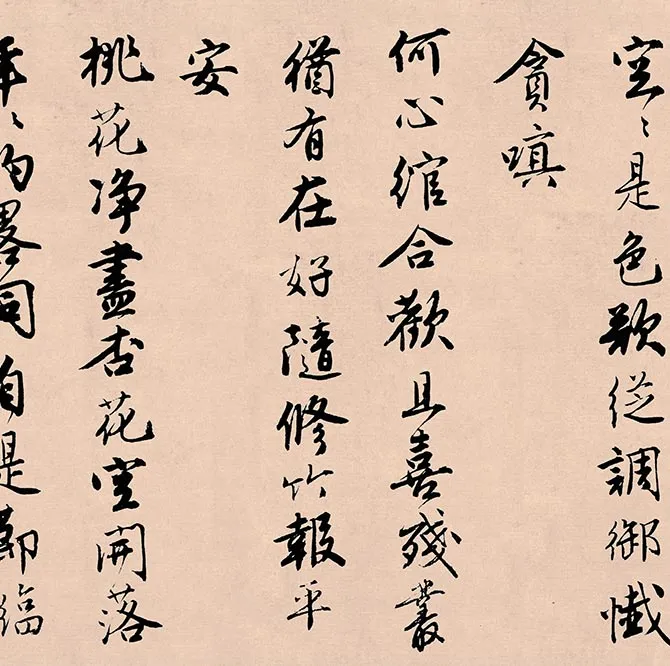 空〻是色欲從調御懺
貪嗔
何心綰合歡且喜殘叢
猶有在好隨修竹報平
安
桃花净盡杏花空開落
年〻約畧同自是節臨